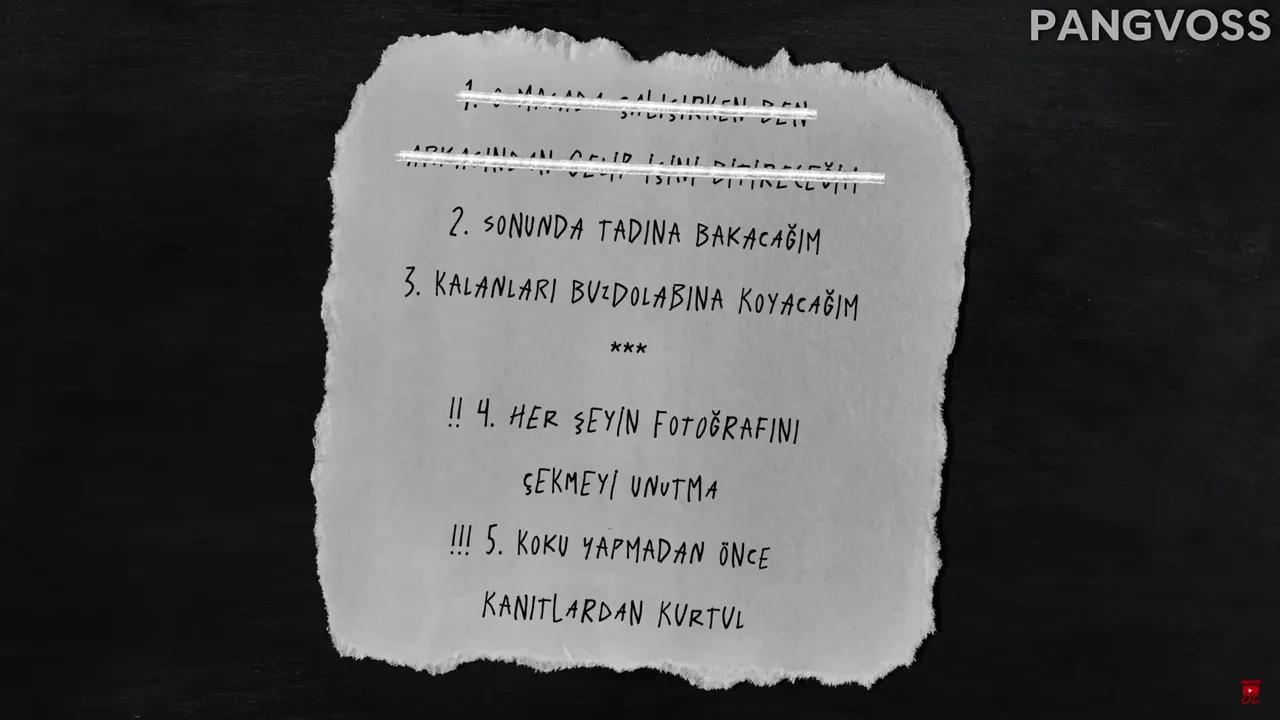 PANGVOSS
1. O MASADA ÇALIŞIRKEN BEN
ARKASINDAN GELİP İŞİNİ BİTİRECEĞİM
2. SONUNDA TADINA BAKACAĞIM
3. KALANLARI BUZDOLABINA KOYACAĞIM
***
!! 4. HER ŞEYİN FOTOĞRAFINI
ÇEKMEYİ UNUTMA
!!! 5. KOKU YAPMADAN ÖNCE
KANITLARDAN KURTUL